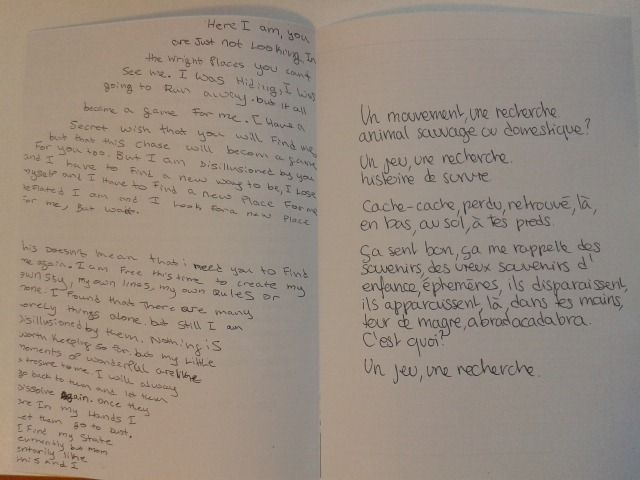 Here I am, you
are Just not Looking, In
the Wright Places you can't
See me. I was Hiding, I was
going to Run away. but It all
become a game for me. I Have a
Secret wish that you will Find me
but that this chase will becom a game
For you too. But I am Disillusioned by you
and I have to Find a new way to be, I Lose
myself and I Have to Find a new Place For me
Deflated I am and I Look For a new Place
for me, But wait.
his Doesn't mean that i need you to Find
me again. I am Free this time to create my
own Sty, my own lines, my own Rules or
none. I Found that There are many
lonely things alone. but Still I am
disillusioned by them. Nothing is
worth keeping so far. but my Little
moments of wonderful are like
a tresure to me. I will alway
go back to them and let them
Dissolve again. Once they
are In my Hands I
Let them go to Dust.
I Find my State
currently but mom
entarily like
this and I
Un mouvement, une recherche.
animal sauvage ou domestique?
Un jeu, une recherche.
histoire de survie
Cache-cache, perdu, retrouvé, là,
en bas, au sol, à tes pieds.
Ça sent bon, ça me rappelle des
souvenirs, des vieux souvenirs d'
enfance, éphémères, ils disparaissent,
ils apparaissent, là, dans tes mains,
tour de magie, abracadabra.
C'est quoi?
Un jeu, une recherche.